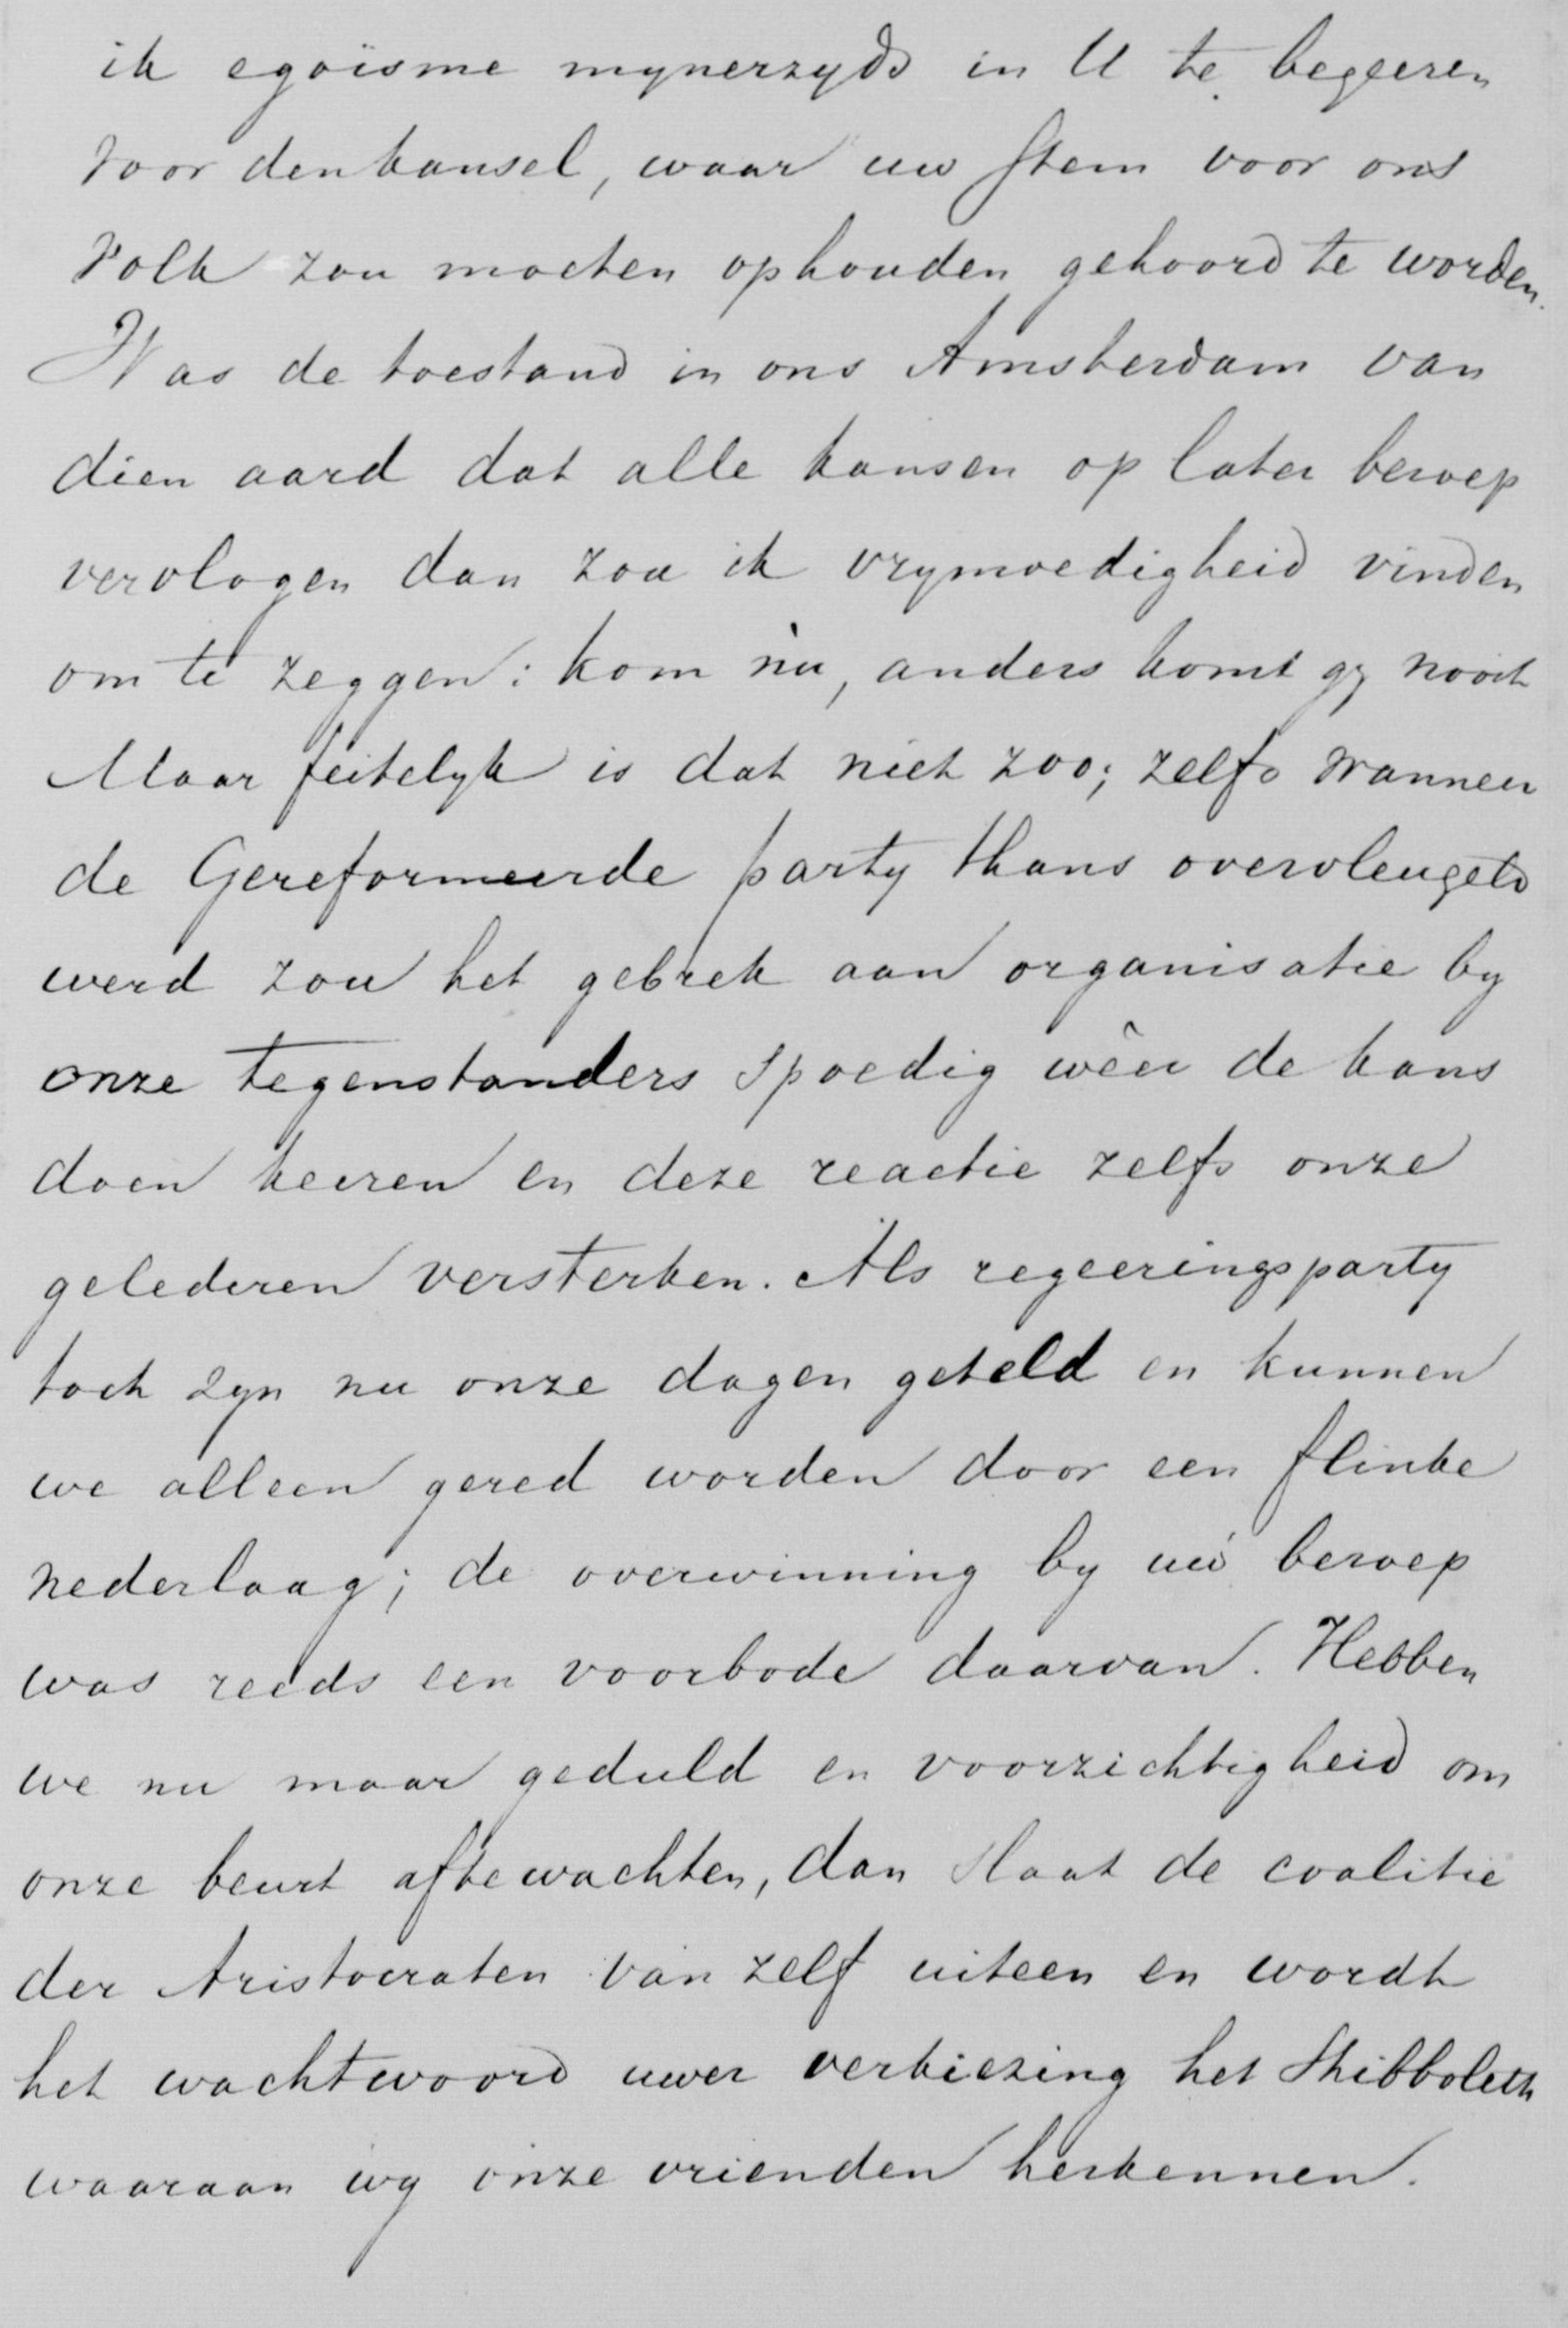 ik egoïsme mynerzyds in U te begeeren
voor den kansel, waar uw stem voor ons
volk zou moeten ophouden gehoord te worden.
Was de toestand in ons Amsterdam van
dien aard dat alle kansen op later beroep
vervlogen dan zou ik vrymoedigheid vinden
om te zeggen: kom nù, anders komt gy nooit
Maar feitelyk is dat niet zoo; zelfs wanneer
de Gereformeerde party thans overvleugeld
werd zou het gebrek aan organisatie by
onze tegenstanders spoedig wêer de kans
doen keeren en deze reactie zelfs onze
gelederen versterken. Als regeeringsparty
toch zyn nu onze dagen geteld en kunnen
we alleen gered worden door een flinke
nederlaag; de overwinning by uw beroep
was reeds een voorbode daarvan. Hebben
we nu maar geduld en voorzichtigheid om
onze beurt aftewachten, dan slaat de coalitie
der Aristocraten van zelf uiteen en wordt
het wachtwoord uwer verkiezing het Shibboleth
waaraan wy onze vrienden herkennen.